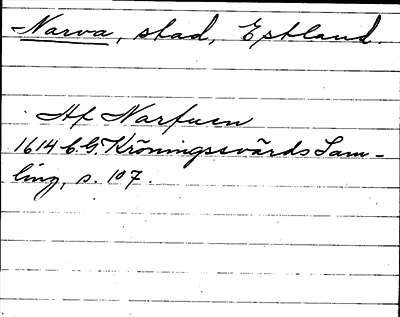 Narva, stad, Estland.
Af Narfuen
1614 C.G. Kröningssvärds Sam-
ling, s. 107.